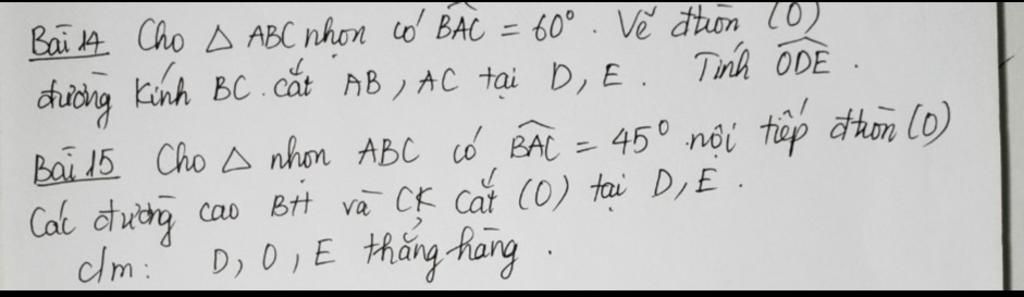 Bài 14 Cho △ ABC nhọn có BAC = 60°. Vẽ đtròn (O)
đường kính BC. cắt AB, AC tại D, E. Tính ODE.
Bài 15 Cho △ nhọn ABC có BAC = 45° nội tiếp đtròn (O)
Các đường cao BH và CK cắt (O) tại D, E.
c/m: D, O, E thẳng hàng.